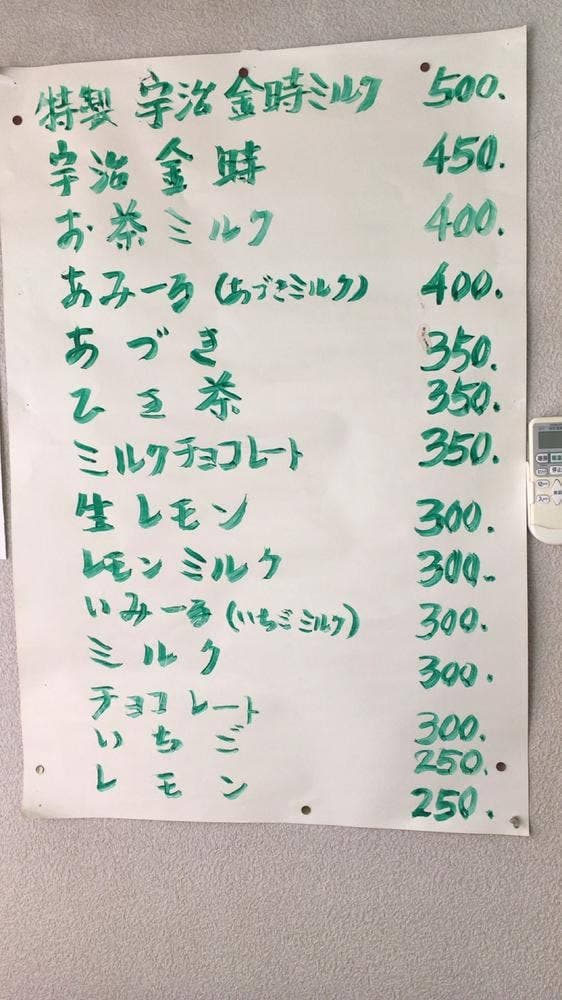 特製 宇治金時ミルク 500.
宇治金時 450.
お茶ミルク 400.
あみーる(あづきミルク) 400.
あづき 350.
ひき茶 350.
ミルクチョコレート 350.
生レモン 300.
レモンミルク 300.
いみーる(いちごミルク) 300.
ミルク 300.
チョコレート 300.
いちご 250.
レモン 250.